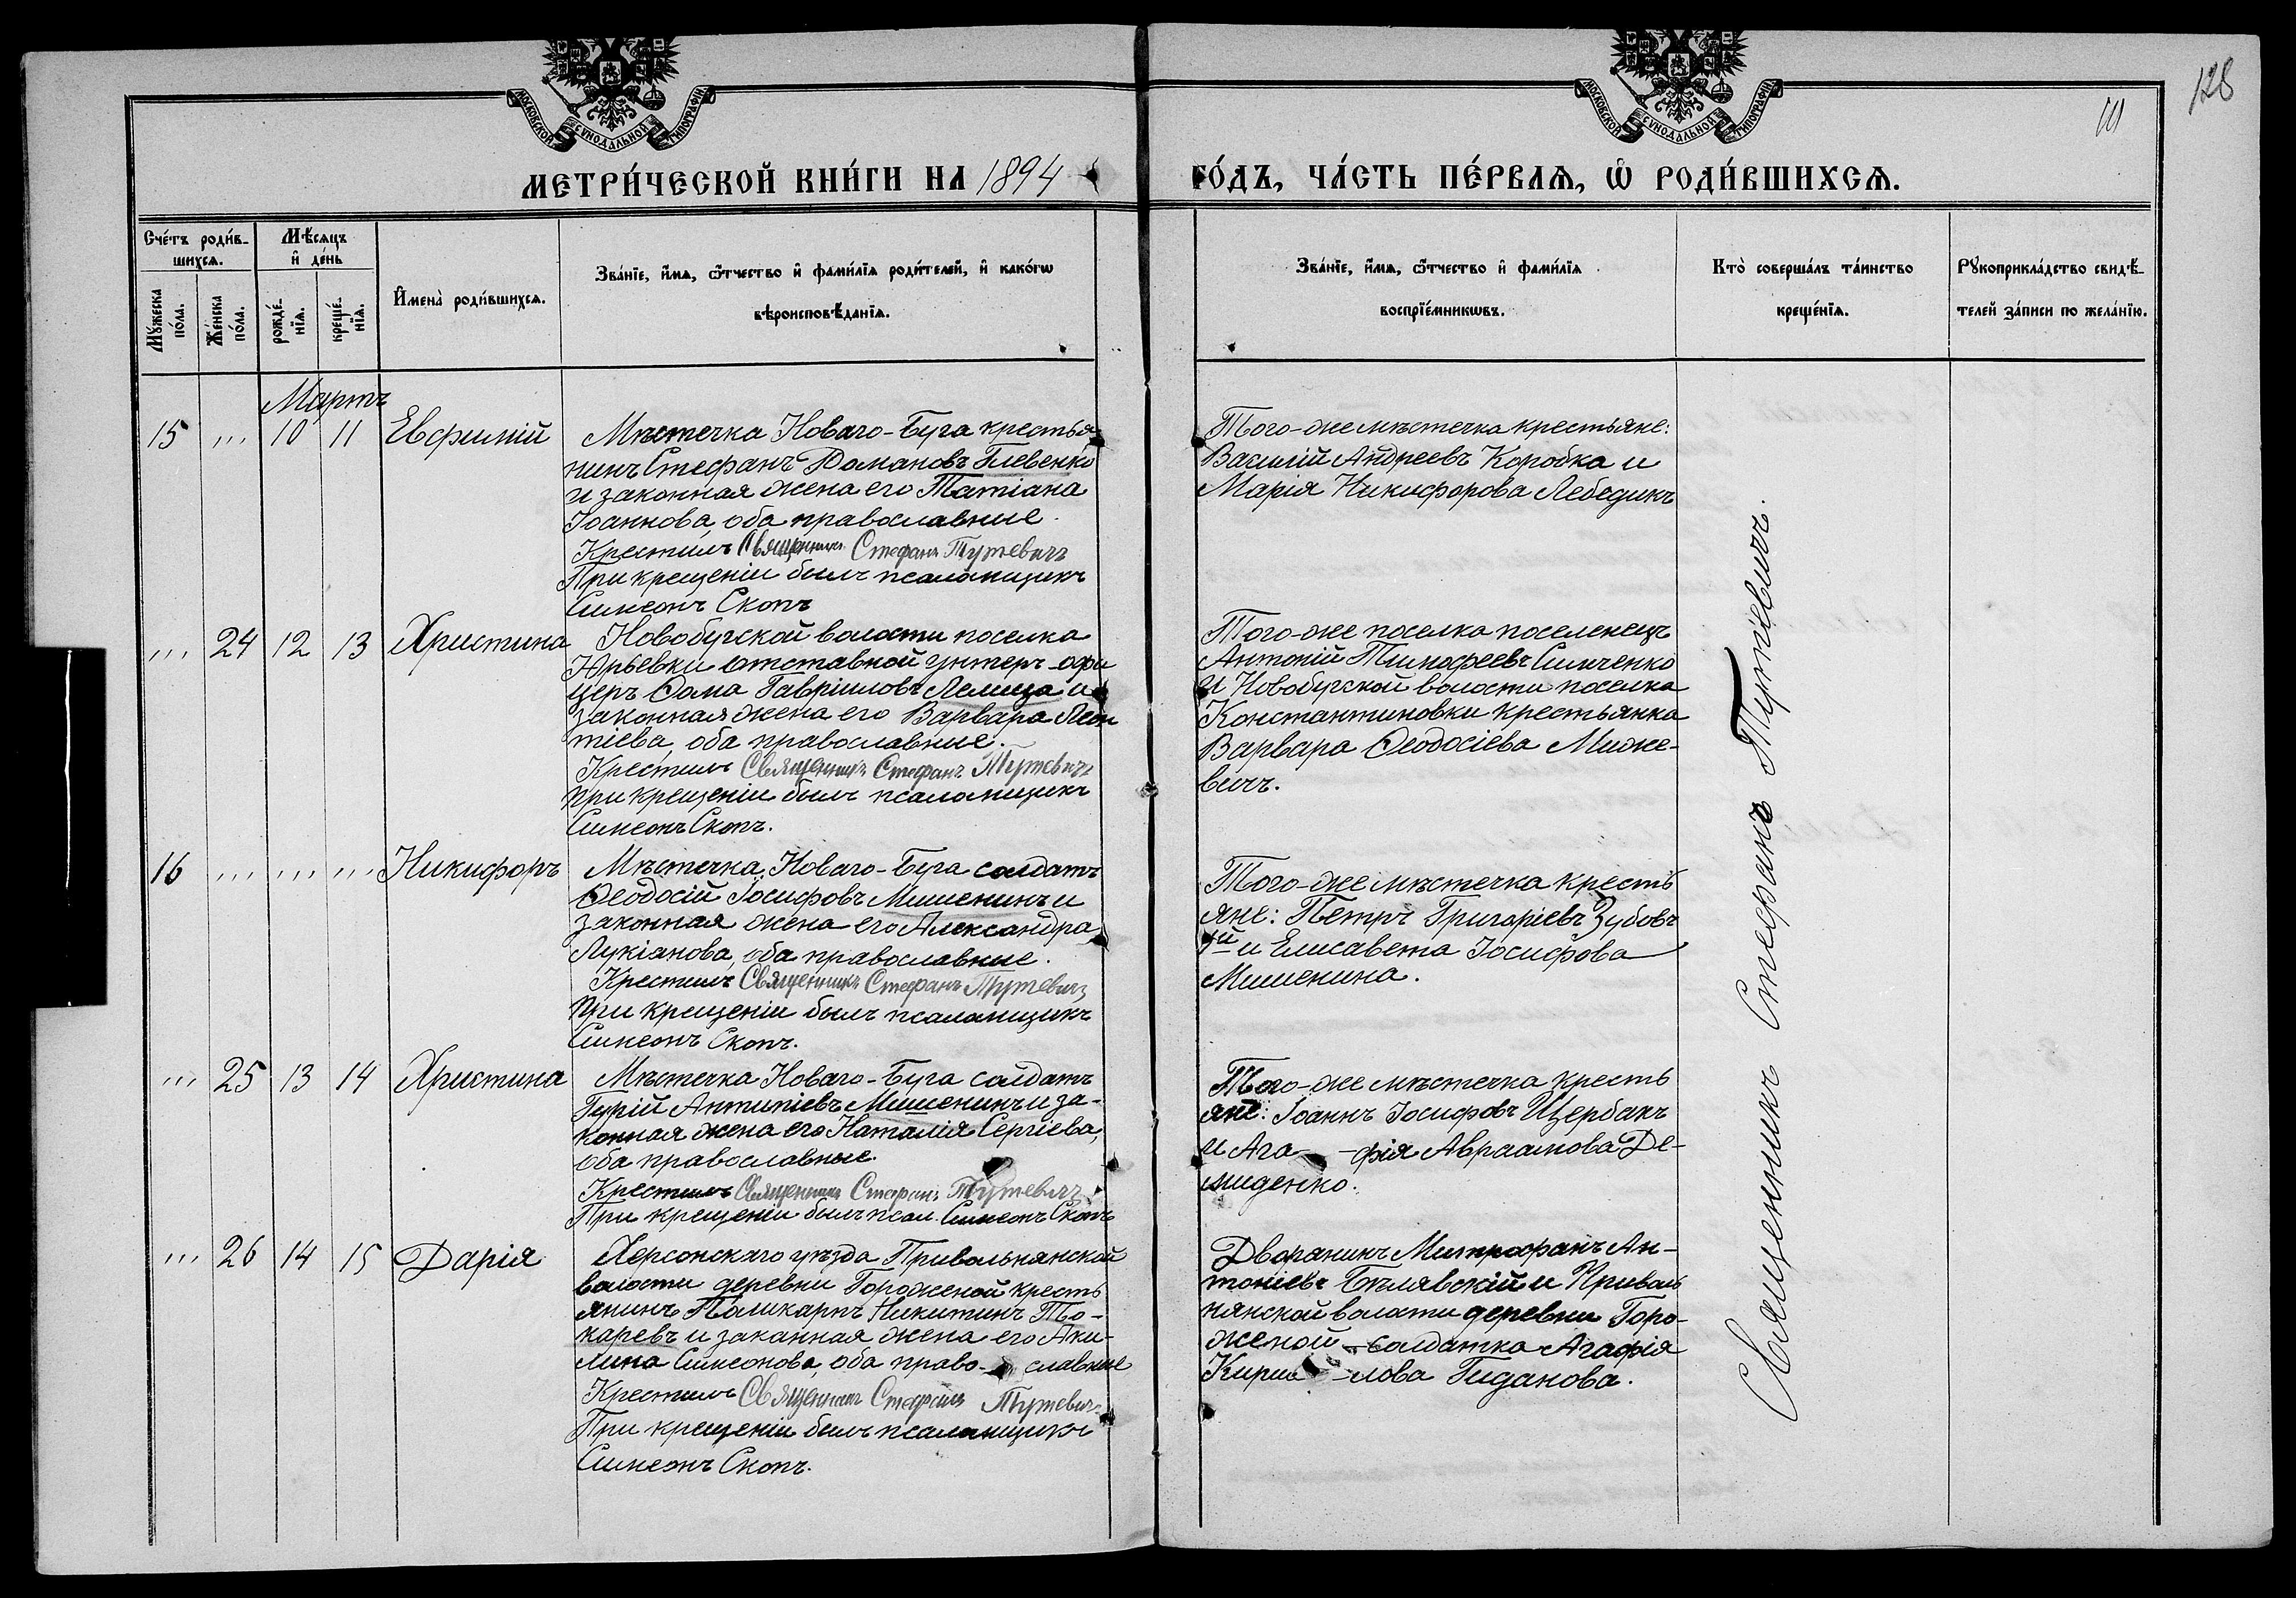 МОСКОВСКОЙ СѴНОДАЛЬНОЙ ТИПОГРАФІИ
МОСКОВСКОЙ СѴНОДАЛЬНОЙ ТИПОГРАФІИ
128
МЕТРИ́ЧЕСКОЙ КНИ́ГИ НА 1894
ГО́ДЪ, ЧА́СТЬ ПЕ́РВАѦ, Ѡ РОДИ́ВШИХСѦ.
Сче́тъ роди́в-
шихсѧ.
Мꙋ́жеска
по́ла.
Же́нска
по́ла.
Мѣ́сѧцъ
и҆ де́нь
рожде́-
нїѧ.
креще́-
нїѧ.
И҆мена̀ роди́вшихсѧ.
Зва́нїе, и҆́мѧ, ѻ҆́тчество и҆ фами́лїѧ роди́телей, и҆ како́гѡ
вѣроисповѣ́данїѧ.
Зва́нїе, и҆́мѧ, ѻ҆́тчество и҆ фами́лїѧ
воспрїе́мникѡвъ.
Кто̀ соверша́лъ та́инство
креще́нїѧ.
Рꙋкоприкла́дство свидѣ́-
телей за́писи по жела́нїю.
Мартъ
15 ... 10 11 Евфимій
Мѣстечка Новаго-Буга крестья
нинъ Стефанъ Романовъ Глевенко
и законная жена его Татіана
Іоаннова, оба православные.
Крестилъ Священникъ Стефанъ Путевичъ
При крещеніи былъ псаломщикъ
Симеонъ Скопъ
Того-же мѣстечка крестьяне:
Василій Андреевъ Коробка и
Марія Никифорова Лебедикъ
... 24 12 13 Христина
Новобугской волости поселка
Юрьевки отставной унтеръ-офи
церъ Ѳома Гавріиловъ Лемеза и
законная жена его Варвара Леон
тіева, оба православные.
Крестилъ Священникъ Стефанъ Путевичъ
При крещеніи былъ псаломщикъ
Симеонъ Скопъ.
Того-же поселка поселенецъ
Антоній Тимофеевъ Симченко
и Новобугской волости поселка
Константиновки крестьянка
Варвара Ѳеодосіева Мицке-
вичъ.
16 ... ... ... Никифоръ
Мѣстечка Новаго-Буга солдатъ
Ѳеодосій Іосифовъ Мишенинъ и
законная жена его Александра
Лукіанова, оба православные.
Крестилъ Священникъ Стефанъ Путевичъ
При крещеніи былъ псаломщикъ
Симеонъ Скопъ.
Того-же мѣстечка кресть
яне: Петръ Григоріевъ Зубовъ
и Елисавета Іосифова
Мишенина.
... 25 13 14 Христина
Мѣстечка Новаго-Буга солдатъ
Гурій Антипіевъ Мишенинъ и за-
конная жена его Наталія Сергіева,
оба православные.
Крестилъ Священникъ Стефанъ Путевичъ
При крещеніи былъ псал. Симеонъ Скопъ
Того-же мѣстечка кресть
яне: Іоаннъ Іосифовъ Щербакъ
и Ага-фія Авраамова Де-
миденко.
... 26 14 15 Дарія
Херсонскаго уѣзда Привольнянской
волости деревни Гороженой кресть
янинъ Поликарпъ Никитинъ То-
каревъ и законная жена его Аки-
лина Симеонова, оба право-славные
Крестилъ Священникъ Стефанъ Путевичъ
При крещеніи былъ псаломщикъ
Симеонъ Скопъ.
Дворянинъ Митрофанъ Ан-
тоніевъ Бѣлявскій и Приволь
нянской волости деревни Горо-
женой солдатка Агафія
Кирил-лова Гиданова.
Священникъ Стефанъ Путевичъ.